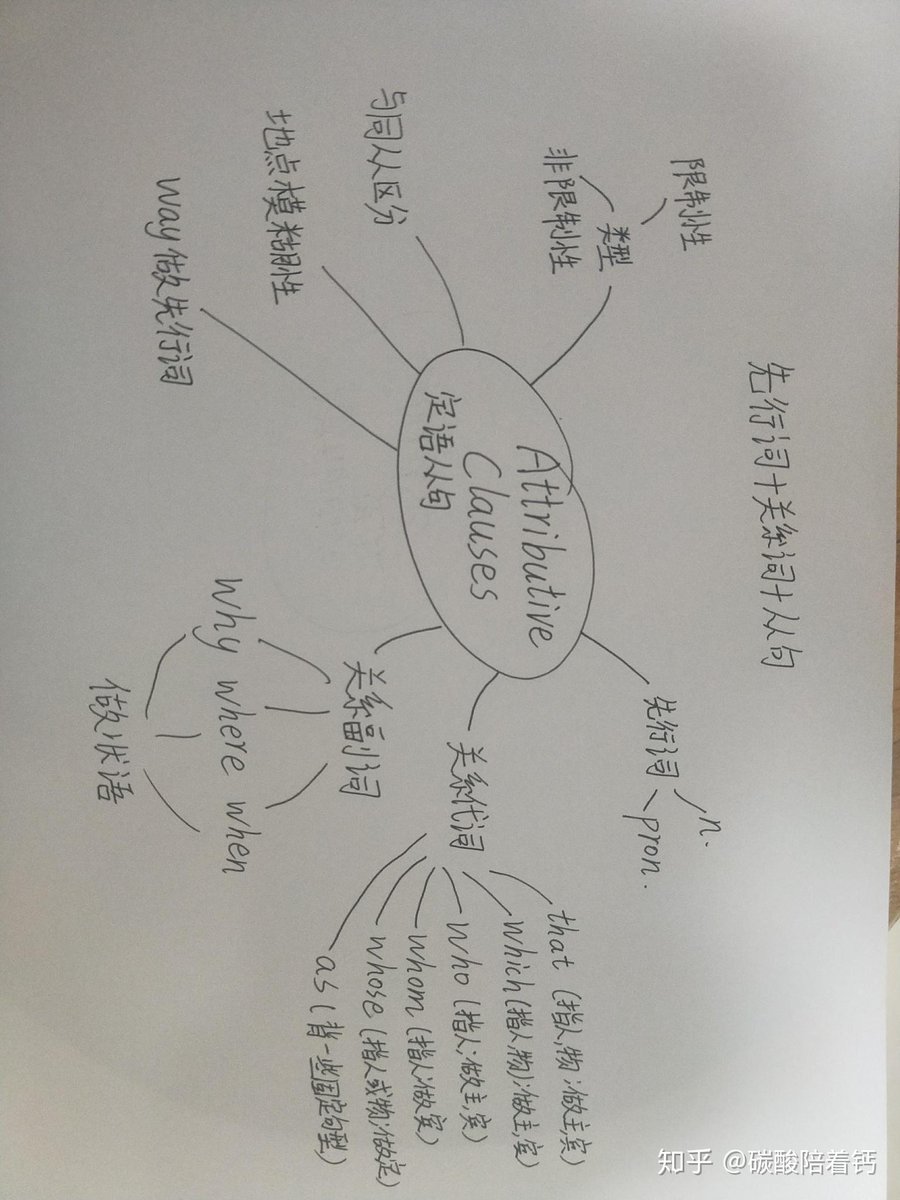 先行词+关系词+从句
限制性
类型
非限制性
与同从区分
地点模糊性
way做先行词
Attributive
Clauses
定语从句
先行词
n.
pron.
关系代词
that (指人,物;做主,宾)
which (指人,物);做主,宾)
who (指人;做主,宾)
whom (指人;做宾)
whose (指人或物;做定)
as (背一些固定句型)
关系副词
why where when
做状语
知乎 @碳酸陪着钙